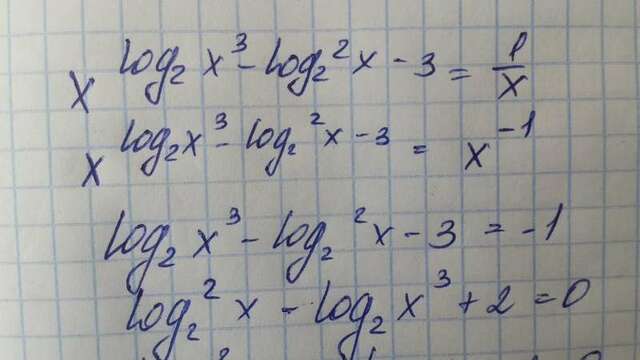 x^{log_2 x^3 - log_2^2 x - 3} = 1/x
x^{log_2 x^3 - log_2^2 x - 3} = x^{-1}
log_2 x^3 - log_2^2 x - 3 = -1
log_2^2 x - log_2 x^3 + 2 = 0